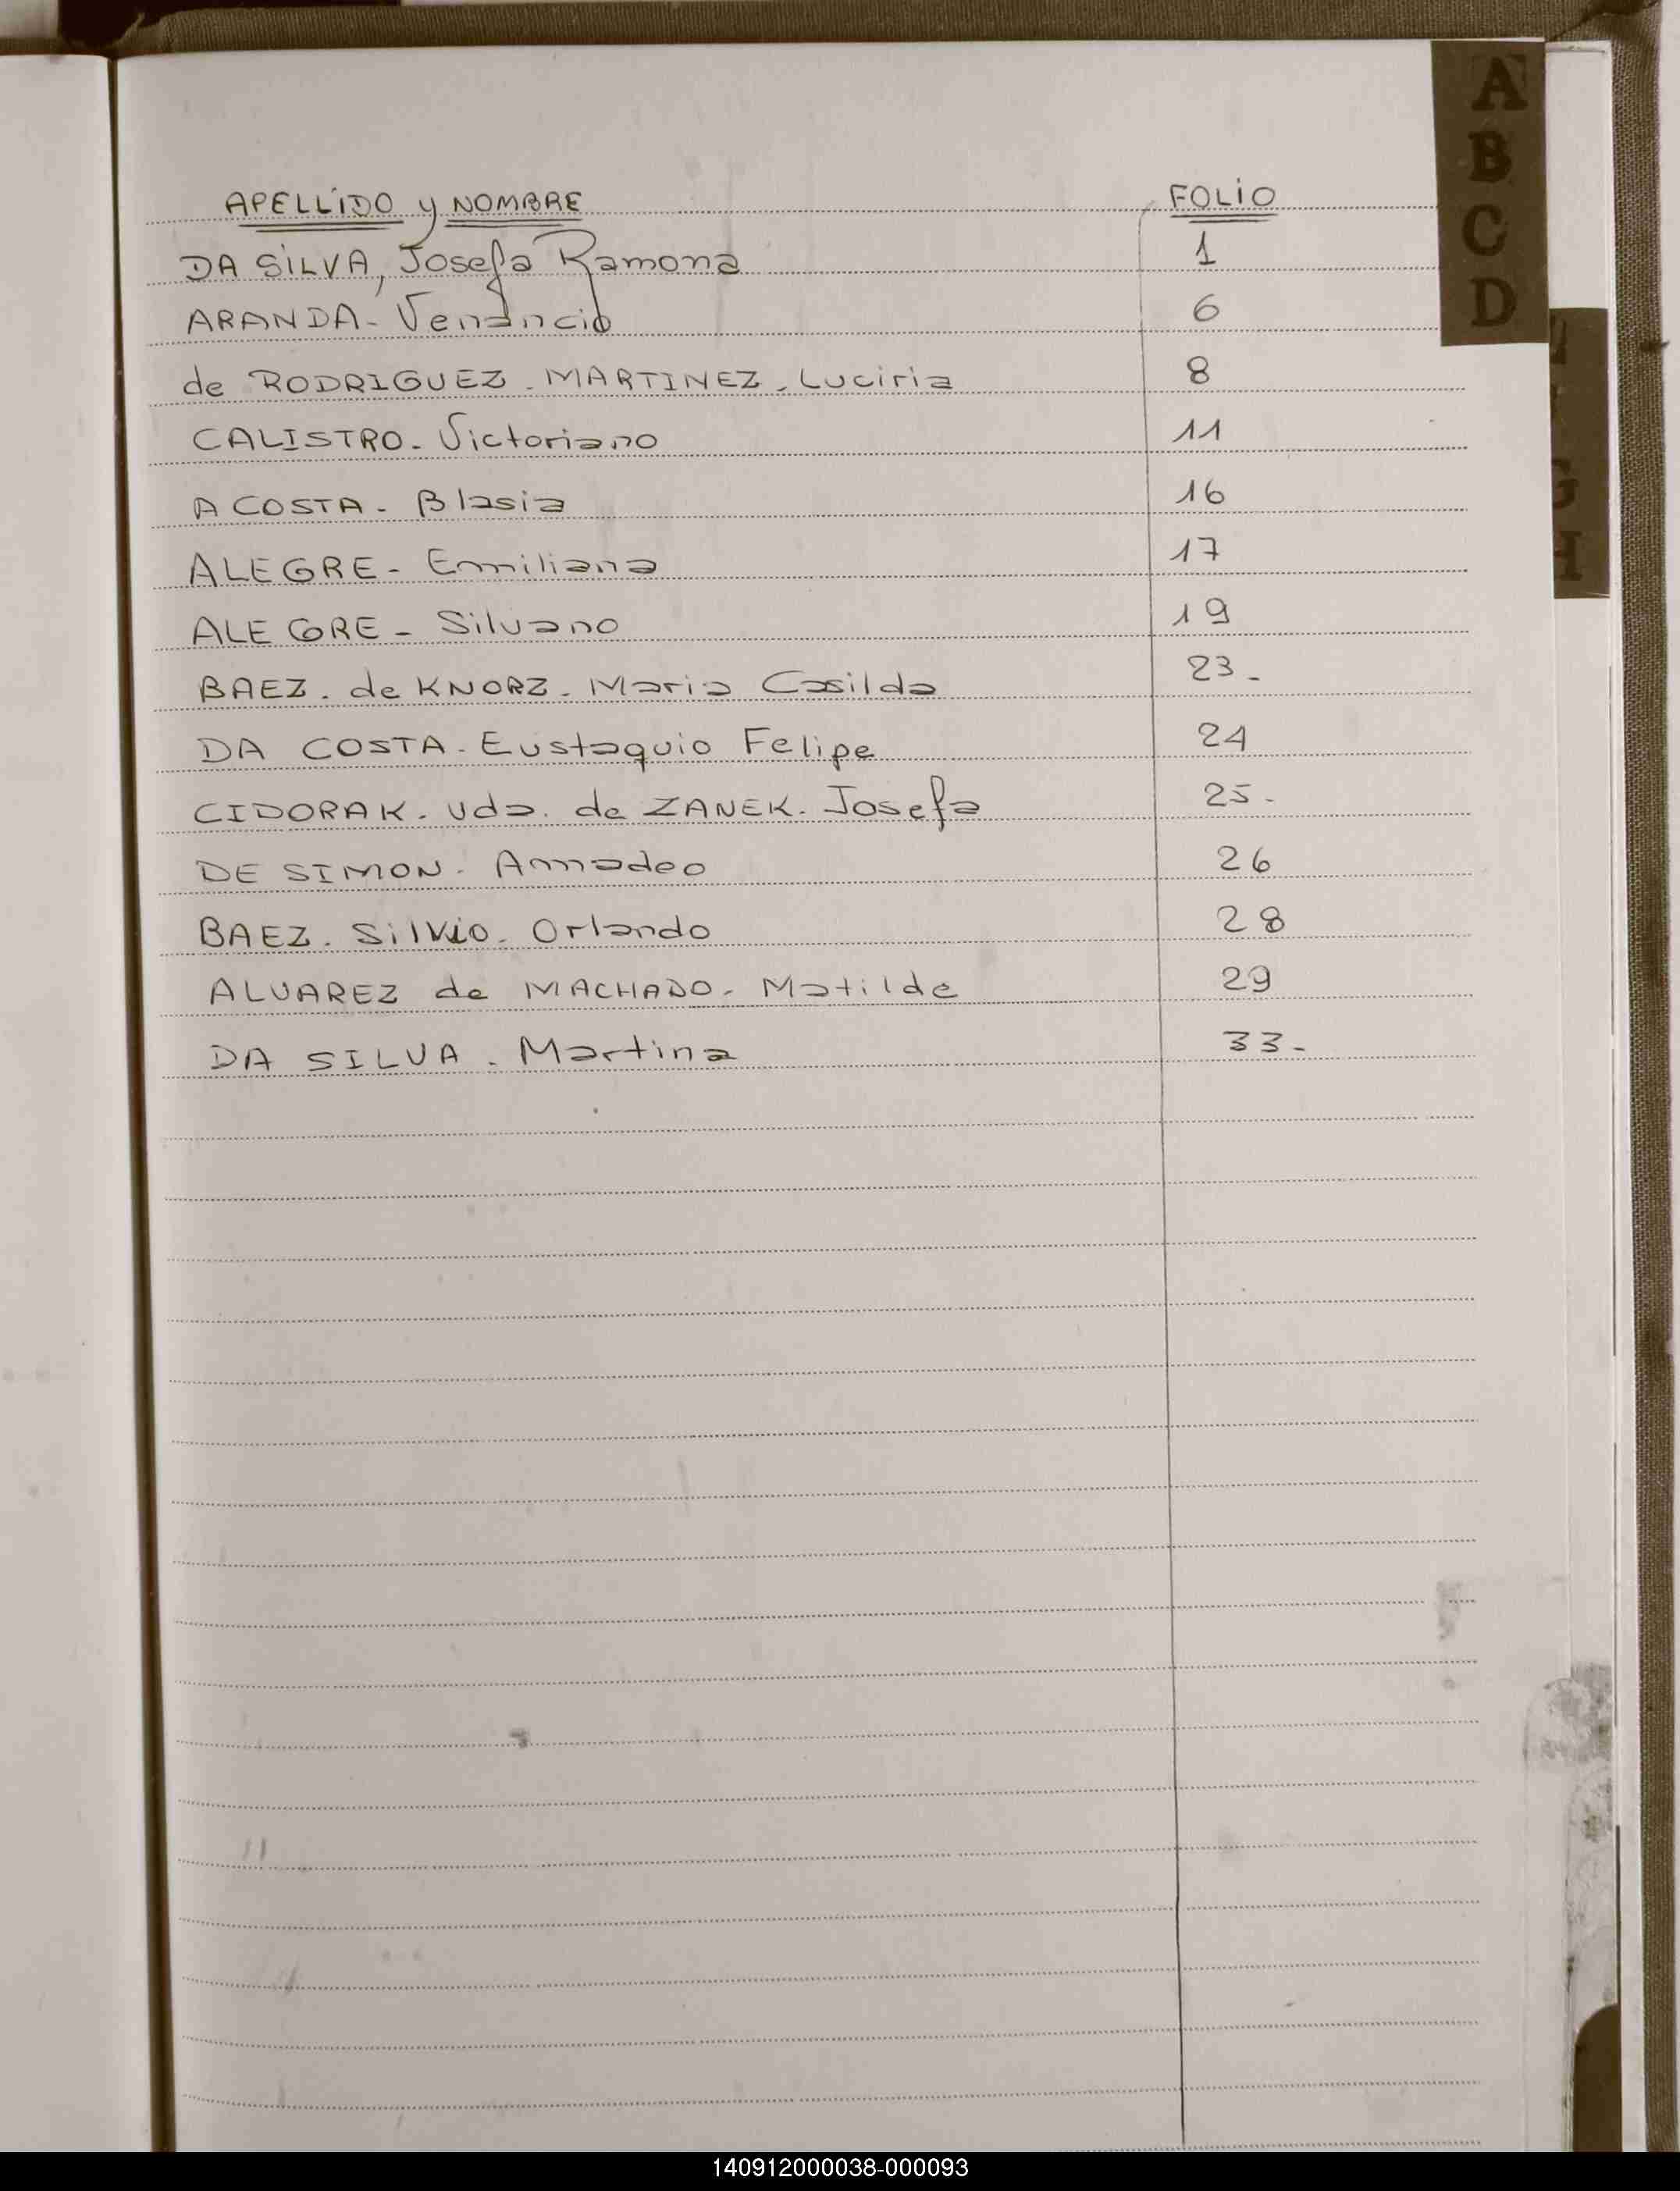 A
B
C
D
APELLIDO y NOMBRE FOLIO
DA SILVA, Josefa Ramona 1
ARANDA - Venancio 6
de RODRIGUEZ - MARTINEZ - Luciria 8
CALISTRO - Victoriano 11
ACOSTA - Blasia 16
ALEGRE - Emiliana 17
ALEGRE - Silvano 19
BAEZ. de KNORZ - Maria Casilda 23 -
DA COSTA - Eustaquio Felipe 24
CIDORAK. Vda. de ZANEK. Josefa 25 -
DE SIMON - Amadeo 26
BAEZ. Silvio. Orlando 28
ALVAREZ de MACHADO - Matilde 29
DA SILVA - Martina 33 -
G
H
140912000038-000093